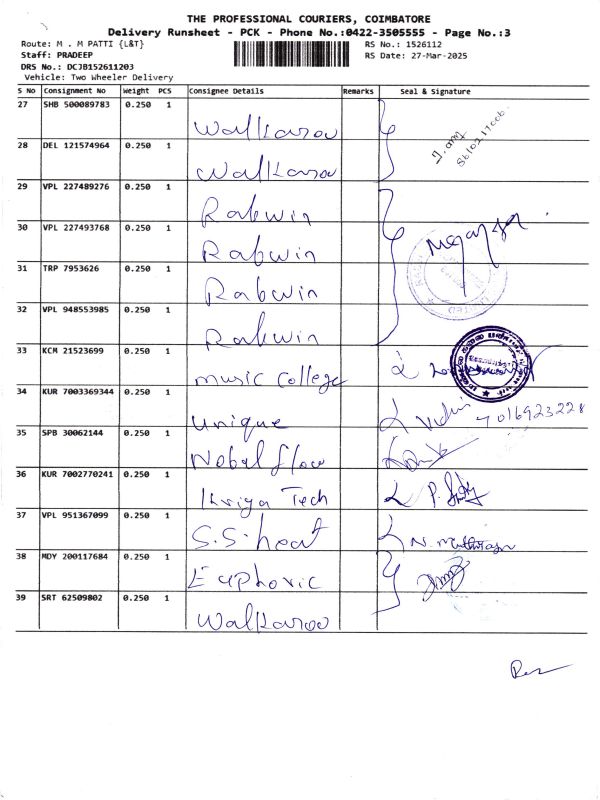 THE PROFESSIONAL COURIERS, COIMBATORE
Delivery Runsheet - PCK - Phone No.:0422-3505555 - Page No.:3
Route: M . M PATTI {L&T}
RS No.: 1526112
Staff: PRADEEP
RS Date: 27-Mar-2025
DRS No.: DCJB152611203
Vehicle: Two Wheeler Delivery
S No Consignment No Weight PCS Consignee Details Remarks Seal & Signature
27 SHB 500089783 0.250 1 Walkaroo
28 DEL 121574964 0.250 1 Walkaroo
29 VPL 227489276 0.250 1 Rabwin
30 VPL 227493768 0.250 1 Rabwin
31 TRP 7953626 0.250 1 Rabwin
32 VPL 948553985 0.250 1 Rabwin
33 KCM 21523699 0.250 1 music College
34 KUR 7003369344 0.250 1 unique 7016923228
35 SPB 30062144 0.250 1 Nobal flow
36 KUR 7002770241 0.250 1 Kriya Tech
37 VPL 951367099 0.250 1 S.S. heat
38 MDY 200117684 0.250 1 Euphoric
39 SRT 62509802 0.250 1 Walkaroo